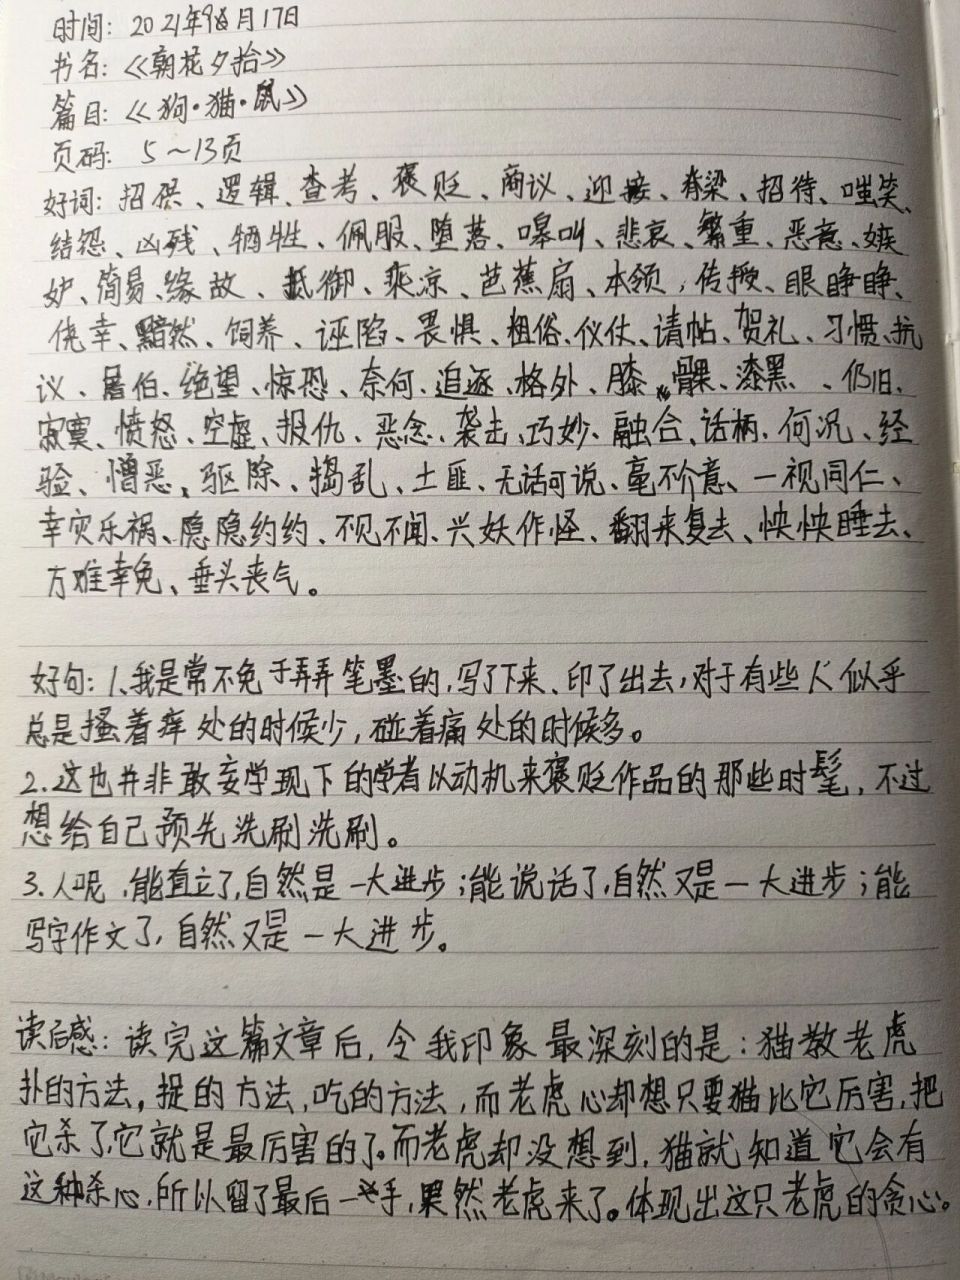 时间: 2021年9月17日
书名:《朝花夕拾》
篇目:《狗·猫·鼠》
页码: 5~13页
好词: 招供、逻辑、查考、褒贬、商议、迎接、脊梁、招待、嗤笑、
结怨、凶残、牺牲、佩服、堕落、嗥叫、悲哀、繁重、恶意、嫉
妒、简易、缘故、抵御、乘凉、芭蕉扇、本领,传授、眼睁睁、
侥幸、黯然、饲养、诬陷、畏惧、粗俗、仪仗、请帖、贺礼、习惯、抗
议、屠伯、绝望、惊恐、奈何、追逐、格外、膝、髁、漆黑、仍旧、
寂寞、愤怒、空虚、报仇、恶念、袭击、巧妙、融合、话柄、何况、经
验、憎恶、驱除、捣乱、土匪、无话可说、毫不介意、一视同仁、
幸灾乐祸、隐隐约约、不见不闻、兴妖作怪、翻来复去、怏怏睡去、
方难幸免、垂头丧气。
好句: 1、我是常不免于弄弄笔墨的,写了下来、印了出去,对于有些人似乎
总是搔着痒处的时候少,碰着痛处的时候多。
2.这也并非敢妄学现下的学者以动机来褒贬作品的那些时髦,不过
想给自己预先洗刷洗刷。
3.人呢,能直立了,自然是一大进步;能说话了,自然又是一大进步;能
写字作文了,自然又是一大进步。
读后感: 读完这篇文章后,令我印象最深刻的是:猫教老虎
扑的方法,捉的方法,吃的方法,而老虎心却想只要猫比它厉害,把
它杀了,它就是最厉害的了。而老虎却没想到,猫就知道它会有
这种杀心,所以留了最后一手,果然老虎来了。体现出这只老虎的贪心。